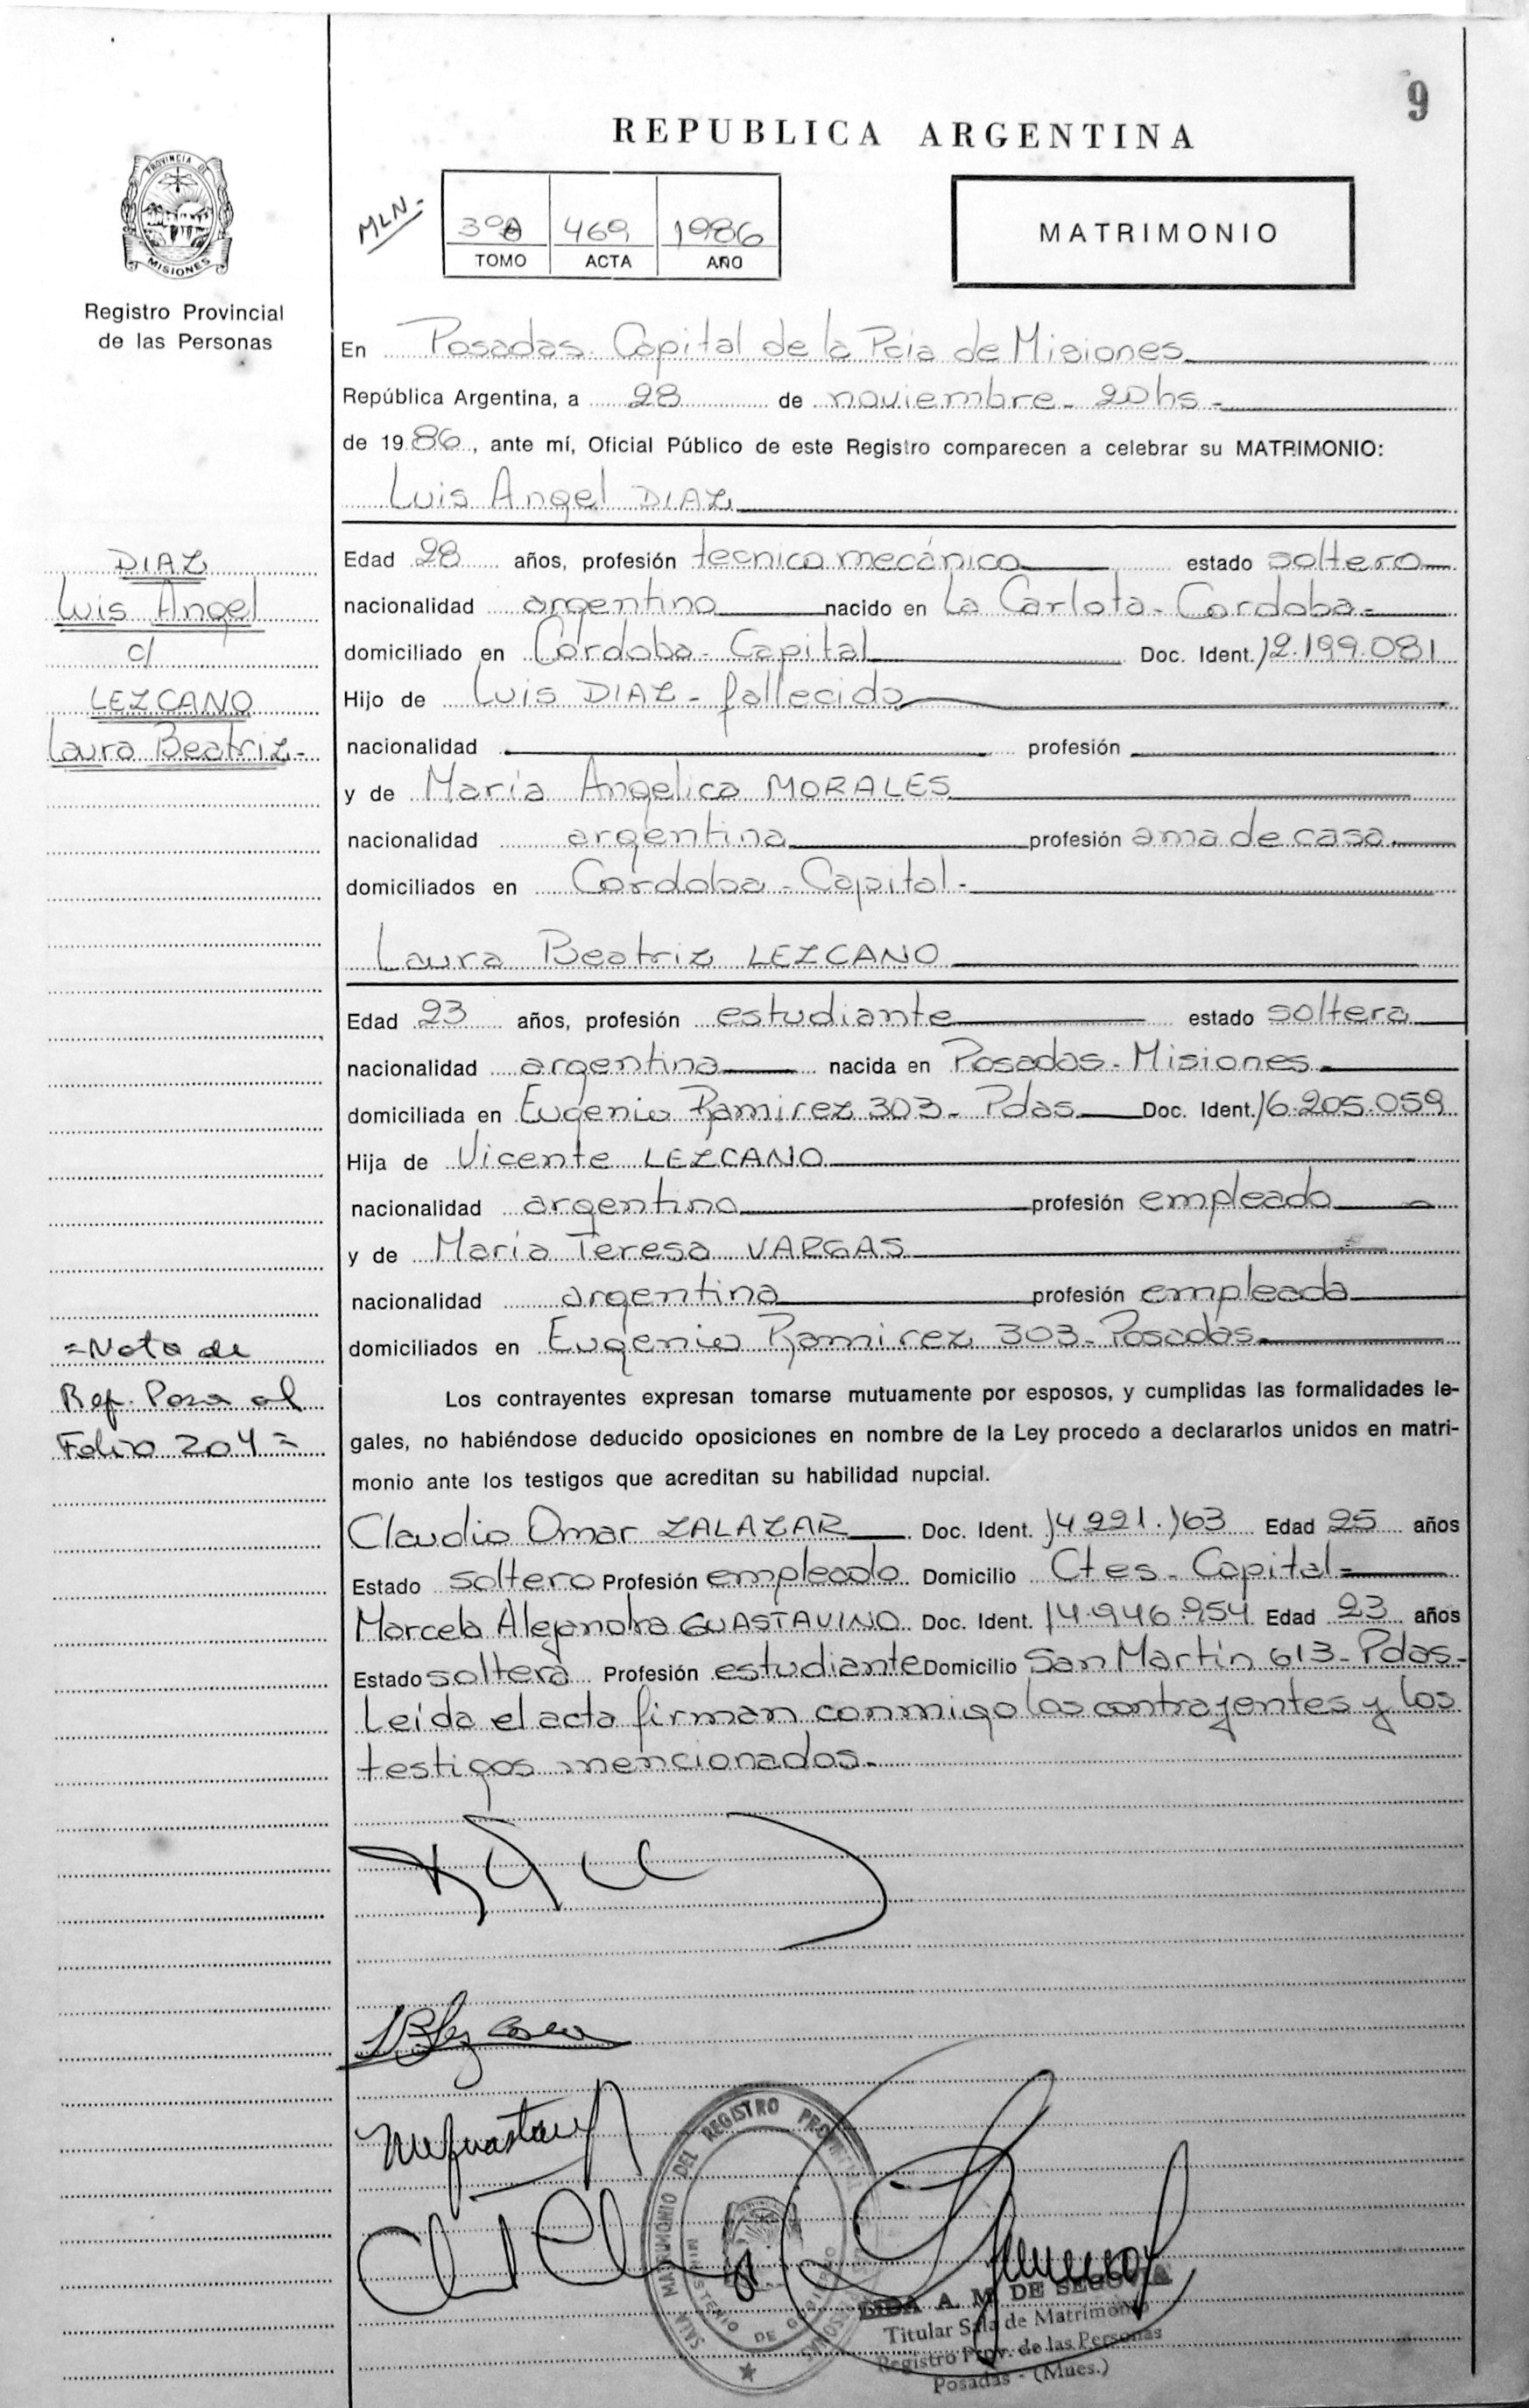 9
REPUBLICA ARGENTINA
PROVINCIA DE
MISIONES
Registro Provincial
de las Personas
MLN-
469 1986
TOMO ACTA AÑO
MATRIMONIO
En Posadas. Capital de la Pcia de Misiones
República Argentina, a 28 de noviembre - 20hs -
de 1986, ante mí, Oficial Público de este Registro comparecen a celebrar su MATRIMONIO:
Luis Angel DIAZ
DIAZ
Luis Angel
c/
LEZCANO
Laura Beatriz-
Edad 28 años, profesión tecnico mecánico estado soltero
nacionalidad argentino nacido en La Carlota - Cordoba -
domiciliado en Córdoba - Capital Doc. Ident. 12.199.081
Hijo de Luis DIAZ - fallecido
nacionalidad profesión
y de María Angelica MORALES
nacionalidad argentina profesión ama de casa
domiciliados en Córdoba - Capital -
Laura Beatriz LEZCANO
Edad 23 años, profesión estudiante estado soltera
nacionalidad argentina nacida en Posadas - Misiones
domiciliada en Eugenio Ramirez 303 - Pdas Doc. Ident. 16.205.059
Hija de Vicente LEZCANO
nacionalidad argentino profesión empleado
y de María Teresa VARGAS
nacionalidad argentina profesión empleada
domiciliados en Eugenio Ramirez 303 - Posadas
=Nota de
Ref. Pasa al
Folio 204=
Los contrayentes expresan tomarse mutuamente por esposos, y cumplidas las formalidades le-
gales, no habiéndose deducido oposiciones en nombre de la Ley procedo a declararlos unidos en matri-
monio ante los testigos que acreditan su habilidad nupcial.
Claudio Omar ZALAZAR Doc. Ident. 14.221.163 Edad 25 años
Estado soltero Profesión empleado Domicilio Ctes - Capital -
Marcela Alejandra GUASTAVINO Doc. Ident. 14.946.954 Edad 23 años
Estado soltera Profesión estudiante Domicilio San Martín 613 - Pdas -
Leída el acta firman conmigo los contrayentes y los
testigos mencionados -
SALA MATRIMONIO DEL REGISTRO PROVINCIAL
MINISTERIO DE GOBIERNO
A. M. DE SEGOVIA
Titular Sala de Matrimonio
Registro Prov. de las Personas
Posadas - (Mnes.)